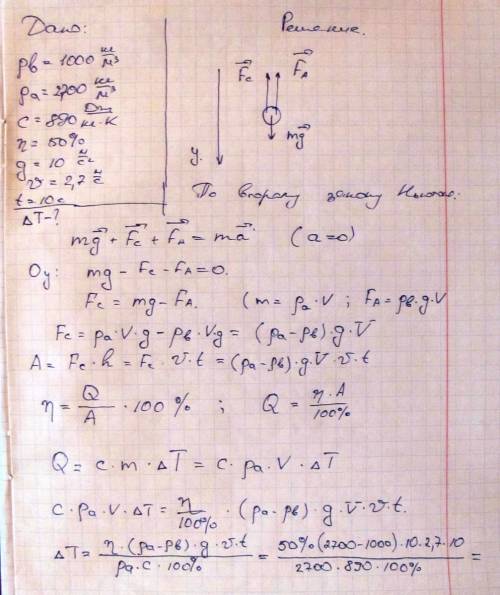 Дано:
ρв = 1000 кг/м³
ρа = 2700 кг/м³
c = 890 Дж/кг·К
η = 50%
g = 10 м/с²
v = 2,7 м/с
t = 10 с
ΔT - ?
Решение.
F⃗c F⃗A
mg⃗
y
По второму закону Ньютона:
mg⃗ + F⃗c + F⃗A = ma⃗ (a=0)
Oy: mg - Fc - FA = 0.
Fc = mg - FA. (m = ρa·V ; FA = ρв·g·V
Fc = ρa·V·g - ρв·V·g = (ρa-ρв)·g·V
A = Fc·h = Fc·v·t = (ρa-ρв)·g·V·v·t
η = Q/A · 100 % ; Q = η·A/100%
Q = c·m·ΔT = c·ρa·V·ΔT
c·ρa·V·ΔT = η/100% · (ρa-ρв)·g·V·v·t.
ΔT = η·(ρa-ρв)·g·v·t/ρa·c·100% = 50%(2700-1000)·10·2,7·10/2700·890·100% =